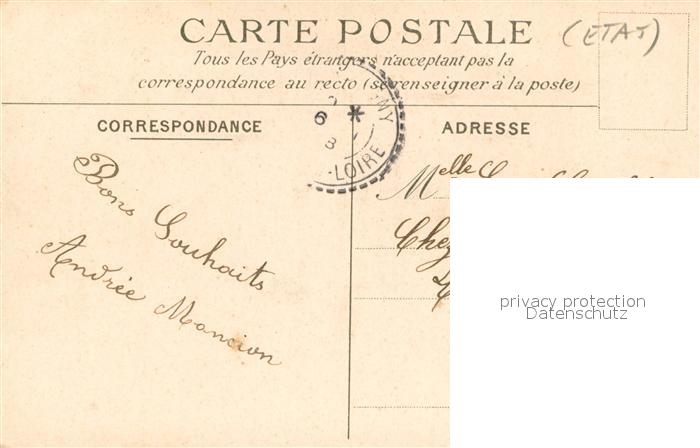 CARTE POSTALE
(ETAT)
Tous les Pays étrangers n'acceptent pas la
correspondance au recto (se renseigner à la poste)
CORRESPONDANCE
ADRESSE
6
8
NY
-LOIRE
Bons
Souhaits
Andrée Mancion
Melle
Chez
privacy protection
Datenschutz